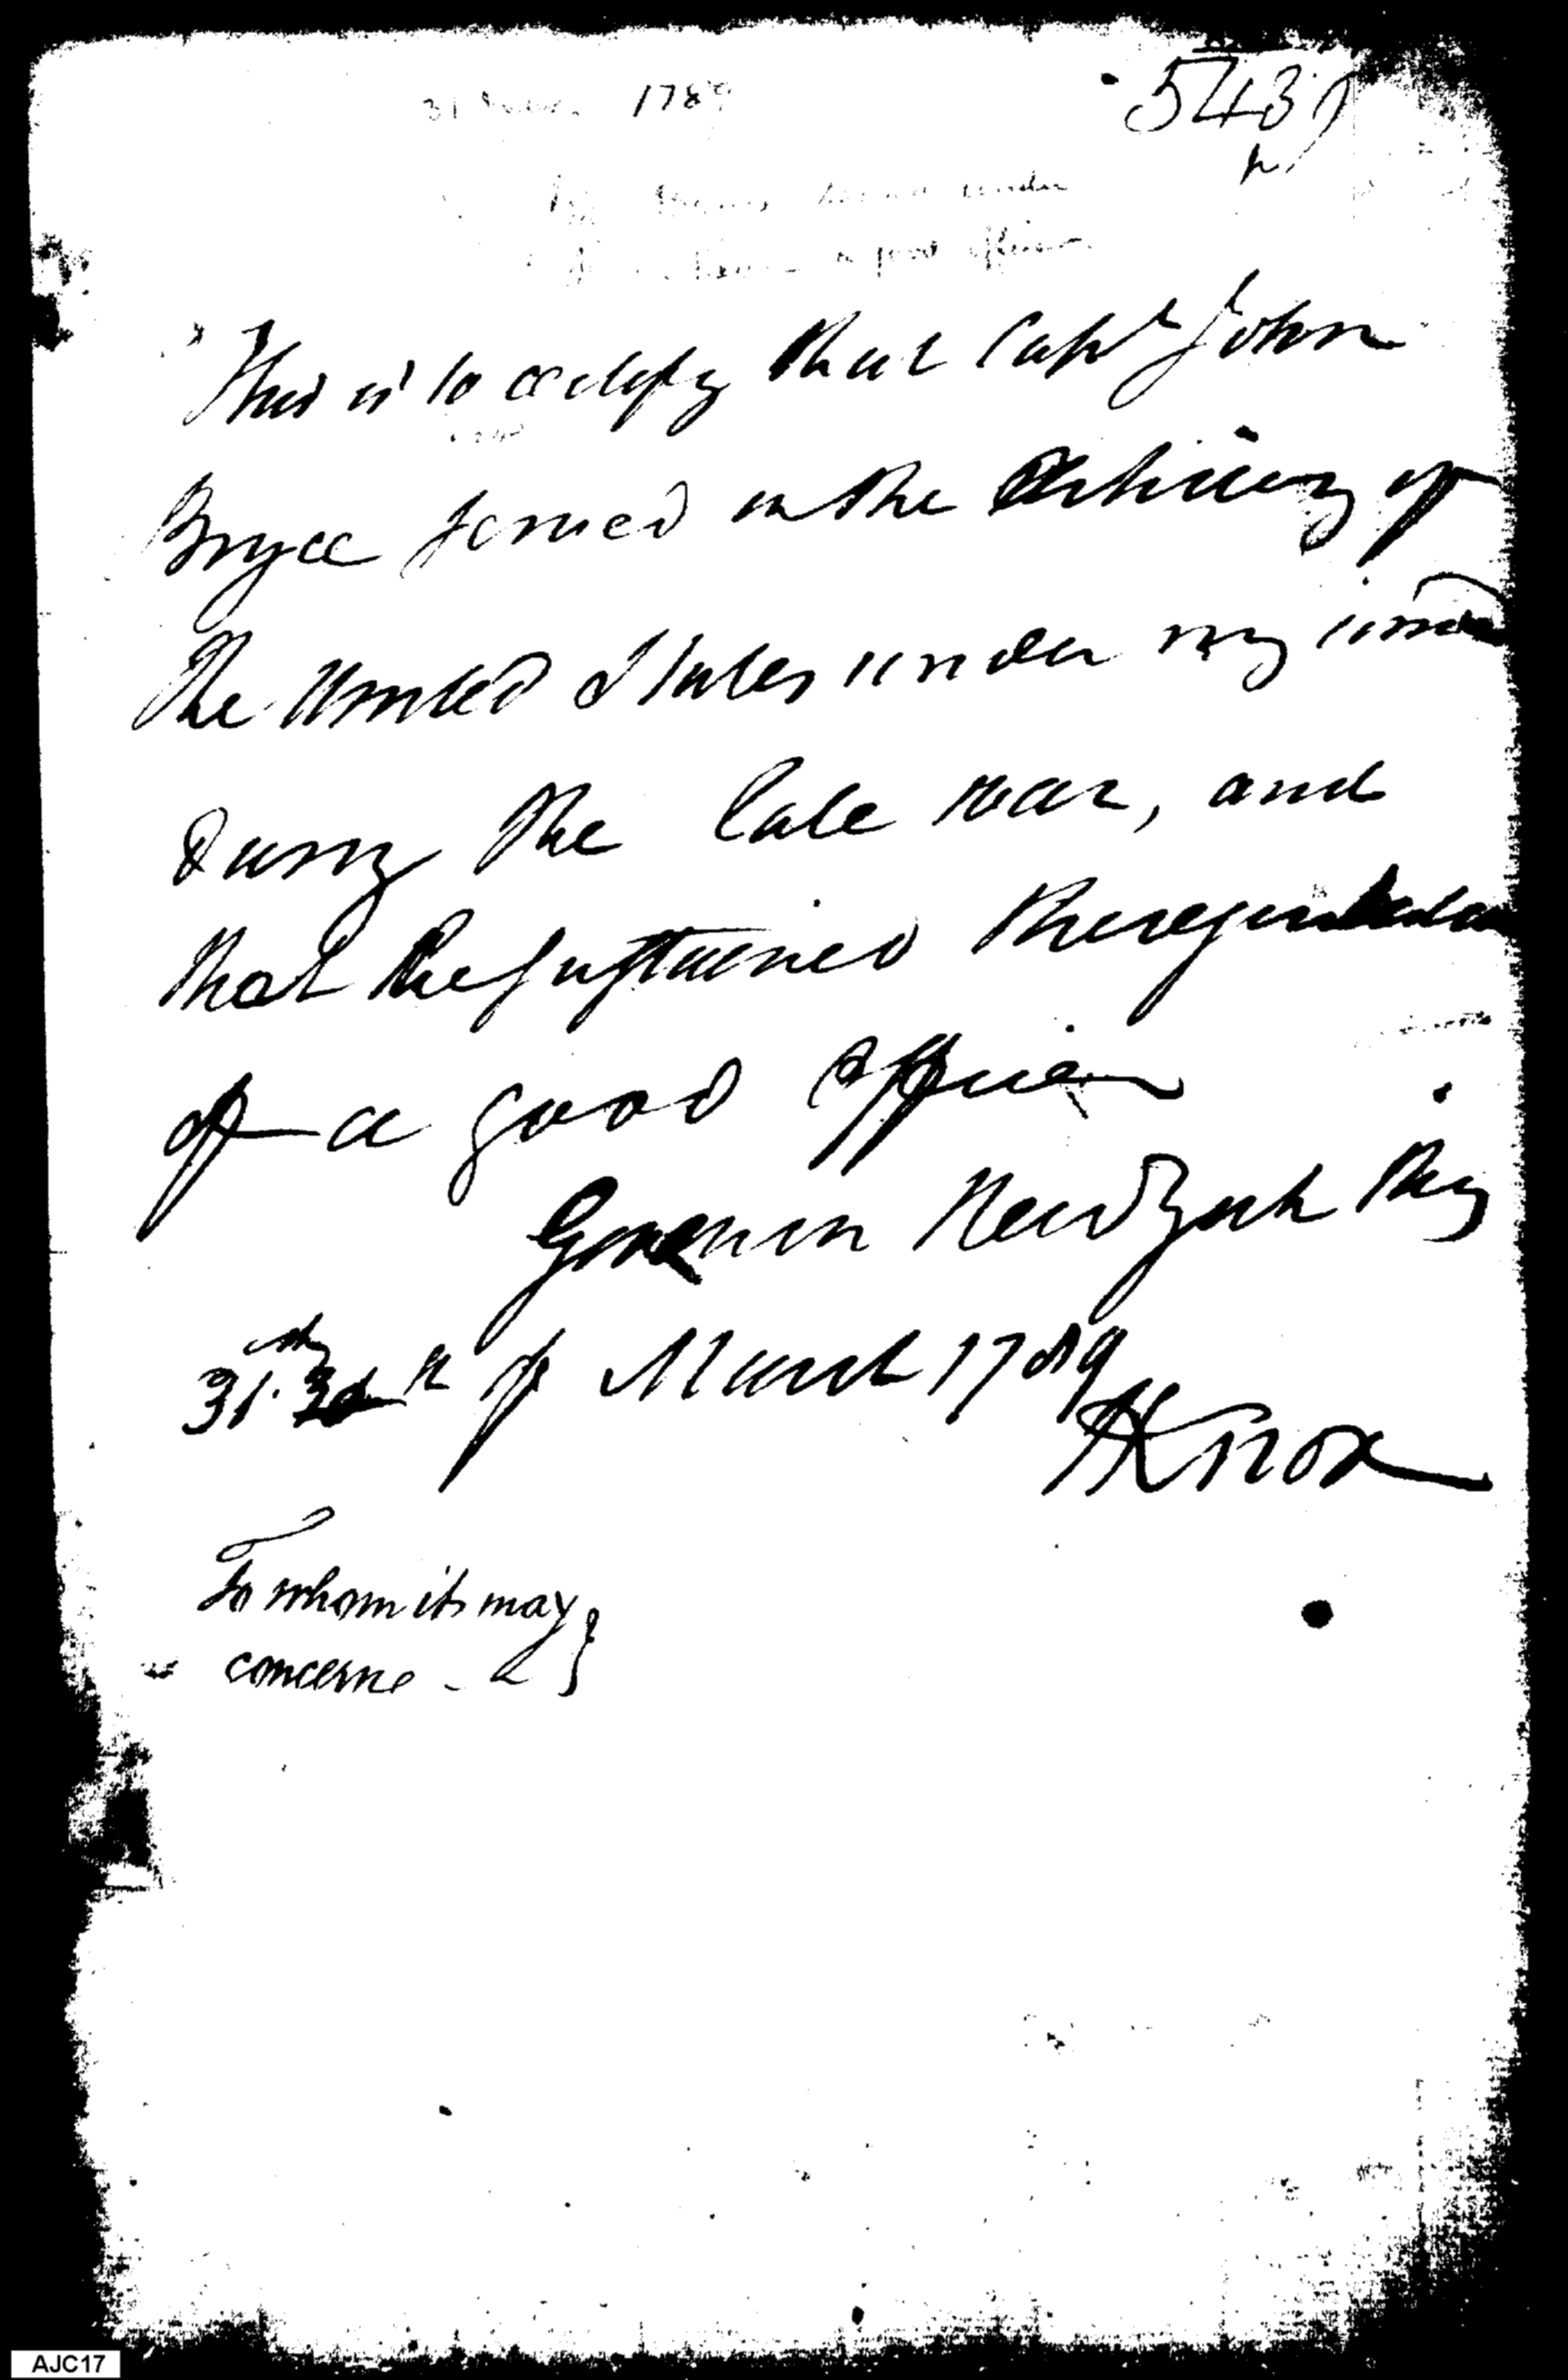 1789
5439
under
a good officer
This is to certify that Capt John
Bryce served in the Artillery of
the United States under my
during the late war, and
that he sustained the reputation
of a good officer
Given in New York this
31st day of March 1789
HKnox
To whom it may
concerne
AJC17